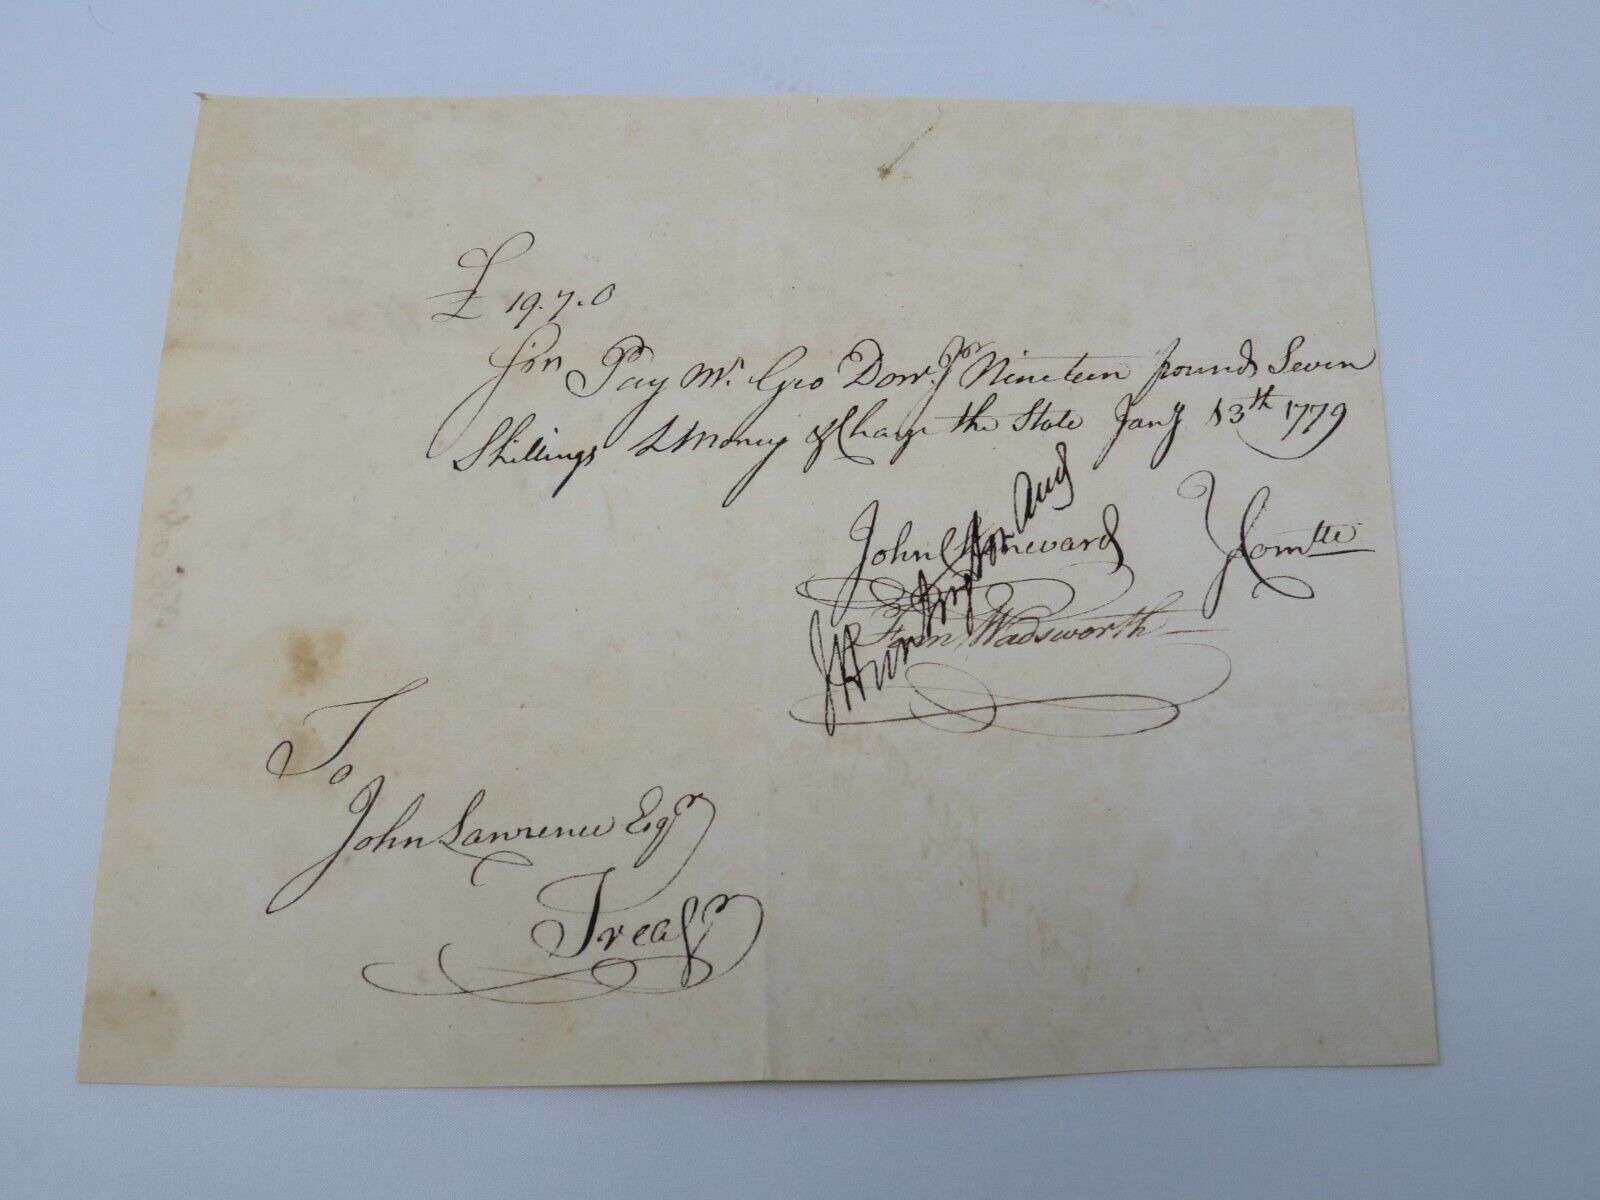 £ 19.7.0
Sir Pay Mr. Geo Dorr Jr Nineteen pounds Seven
Shillings L Money & Charge the State Jany 13th 1779
John Chenevard
Fenn Wadsworth
Comtte
J Huntington Jung
To
John Lawrence Esqr
Treasr